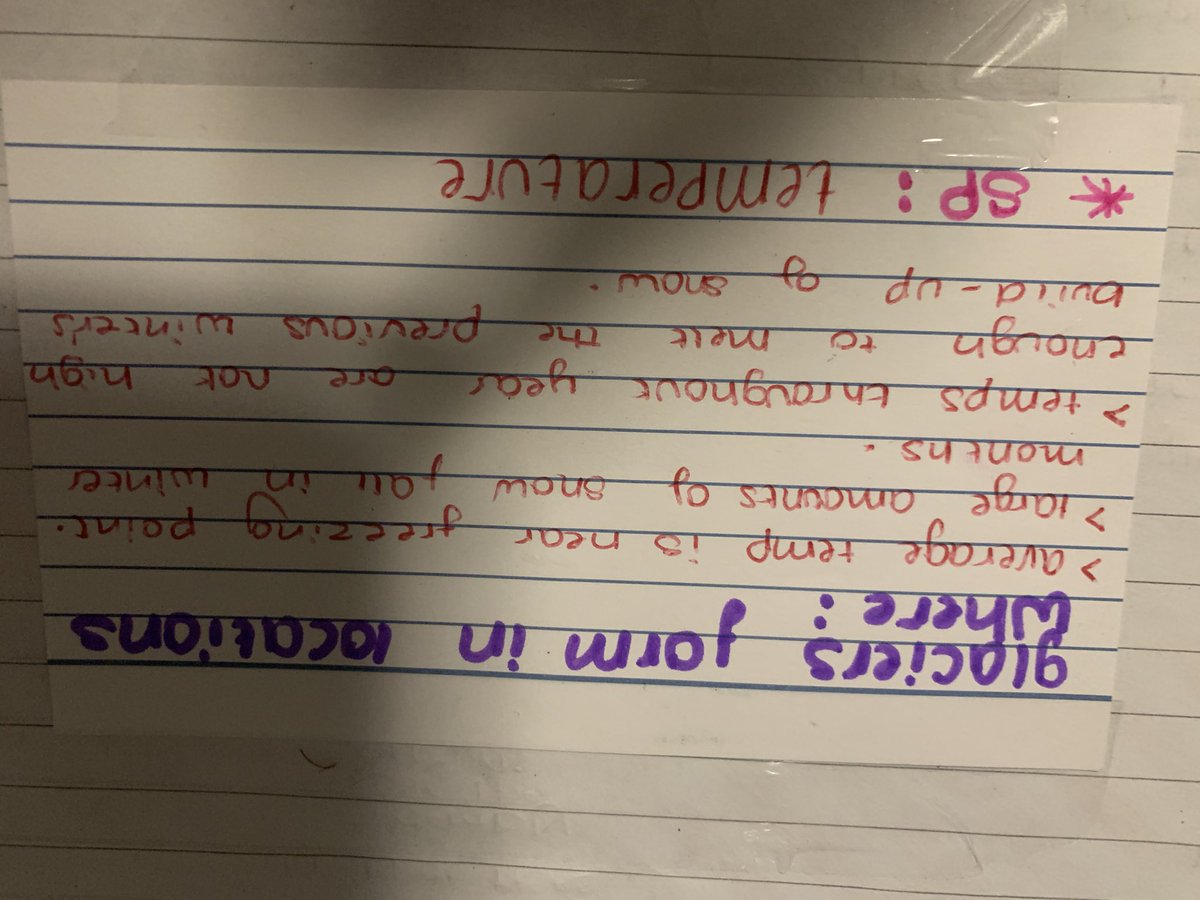 glaciers form in locations
where:
> average temp is near freezing point.
> large amounts of snow fall in winter
months.
> temps throughout year are not high
enough to melt the previous winter's
build-up of snow.
* SP: temperature